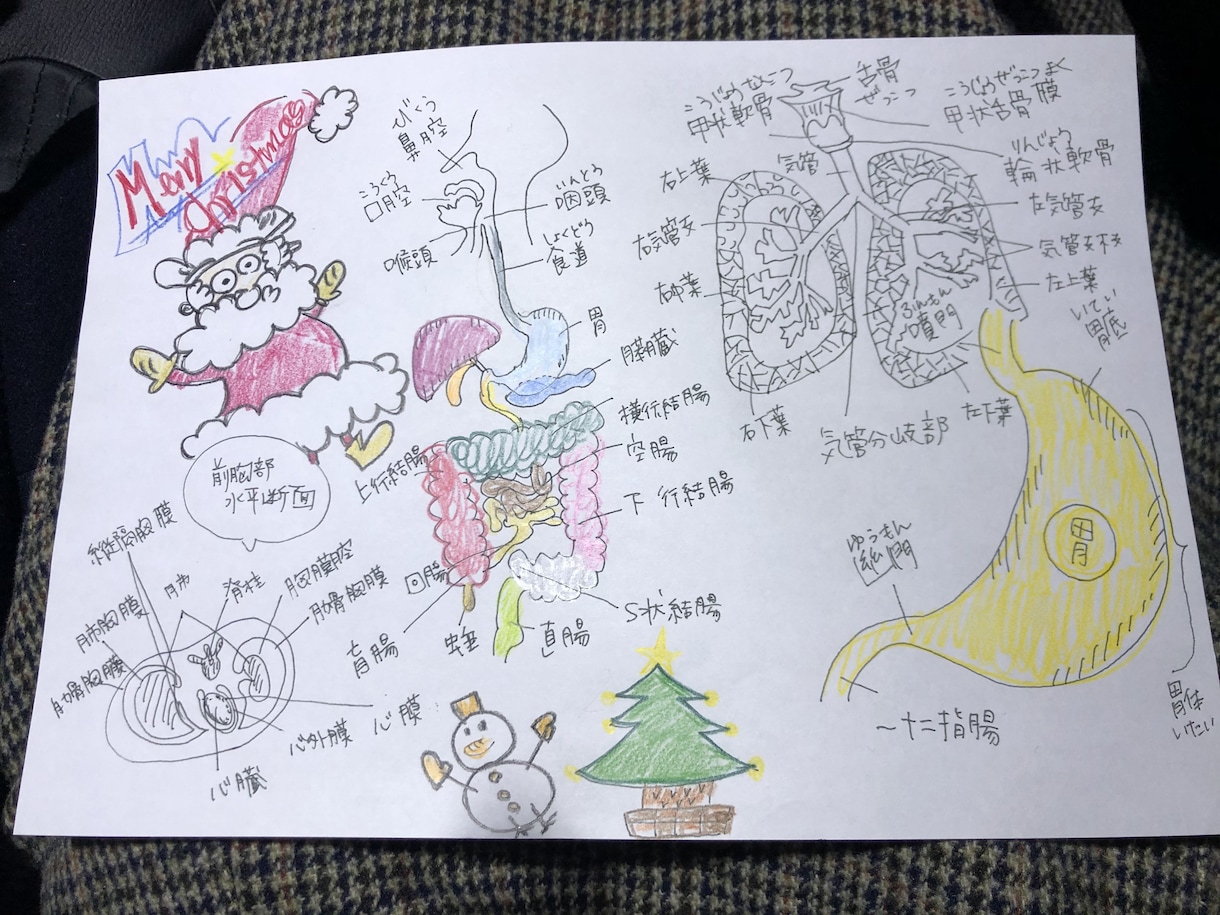 Merry
Christmas
びくう
鼻腔
こうくう
口腔
いんとう
咽頭
喉頭
しょくどう
食道
胃
膵臓
横行結腸
空腸
上行結腸
下行結腸
回腸
S状結腸
盲腸
虫垂
直腸
こうじょうなんこつ
甲状軟骨
舌骨
ぜっこつ
こうじょうぜっこつまく
甲状舌骨膜
りんじょう
輪状軟骨
気管
右上葉
右気管支
右中葉
右下葉
気管分岐部
左気管支
気管支
左上葉
左下葉
ふんもん
噴門
いてい
胃底
胃
ゆうもん
幽門
胃体
いたい
〜十二指腸
前胸部
水平断面
縦隔胸膜
肺
脊柱
胸膜腔
肋骨胸膜
肺胸膜
肋骨胸膜
心膜
心外膜
心臓